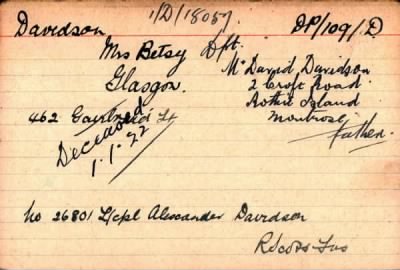 1/D/18057
DP/109/D
Davidson
Mrs Betsy Dft.
Glasgow.
Mr David Davidson
2 Croft Road
Rothie Island
Montrose
Father.
462 St
Deceased
1.1.22
No 26801 L/cpl Alexander Davidson
R Scots Fus